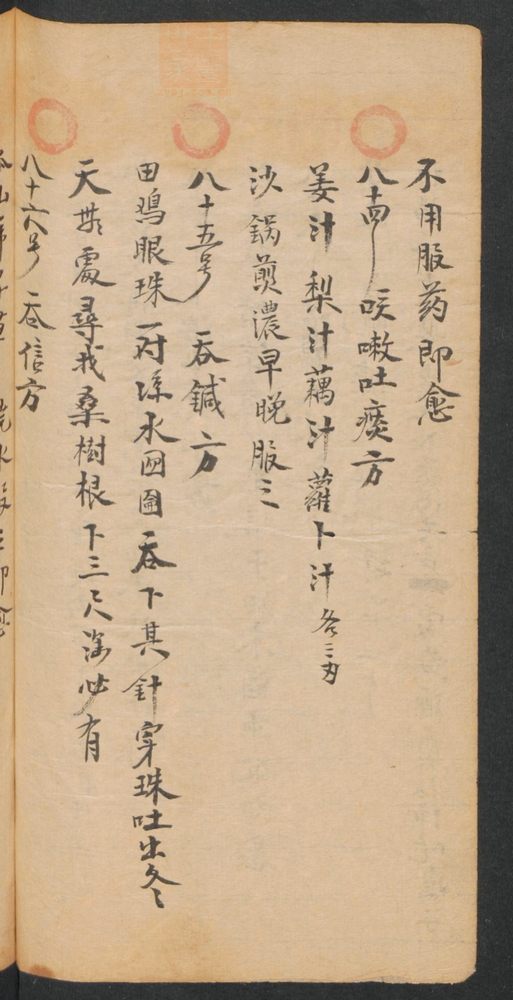 不用服药即愈
八十四 咳嗽吐痰方
姜汁梨汁藕汁蘿卜汁各三刃
沙鍋煎濃早晚服之
八十五号 吞鍼方
田鳮眼珠一对凉水囫圇吞下其針穿珠吐出冬
天無處尋找桑樹根下三尺深必有
八十六号 吞信方